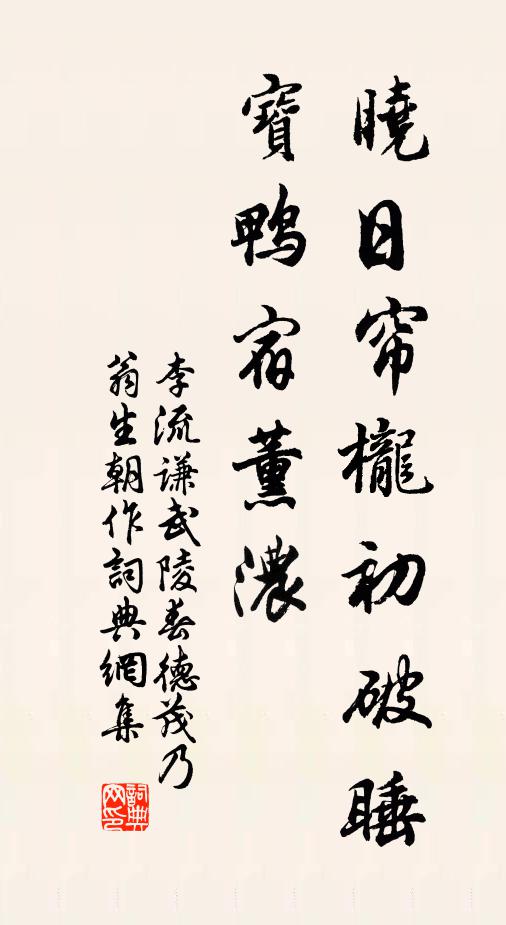 曉日帘櫳初破睡
寶鴨宿薰濃
李流謙武陵春德茂乃
翁生朝作詞典網集
詞典網印